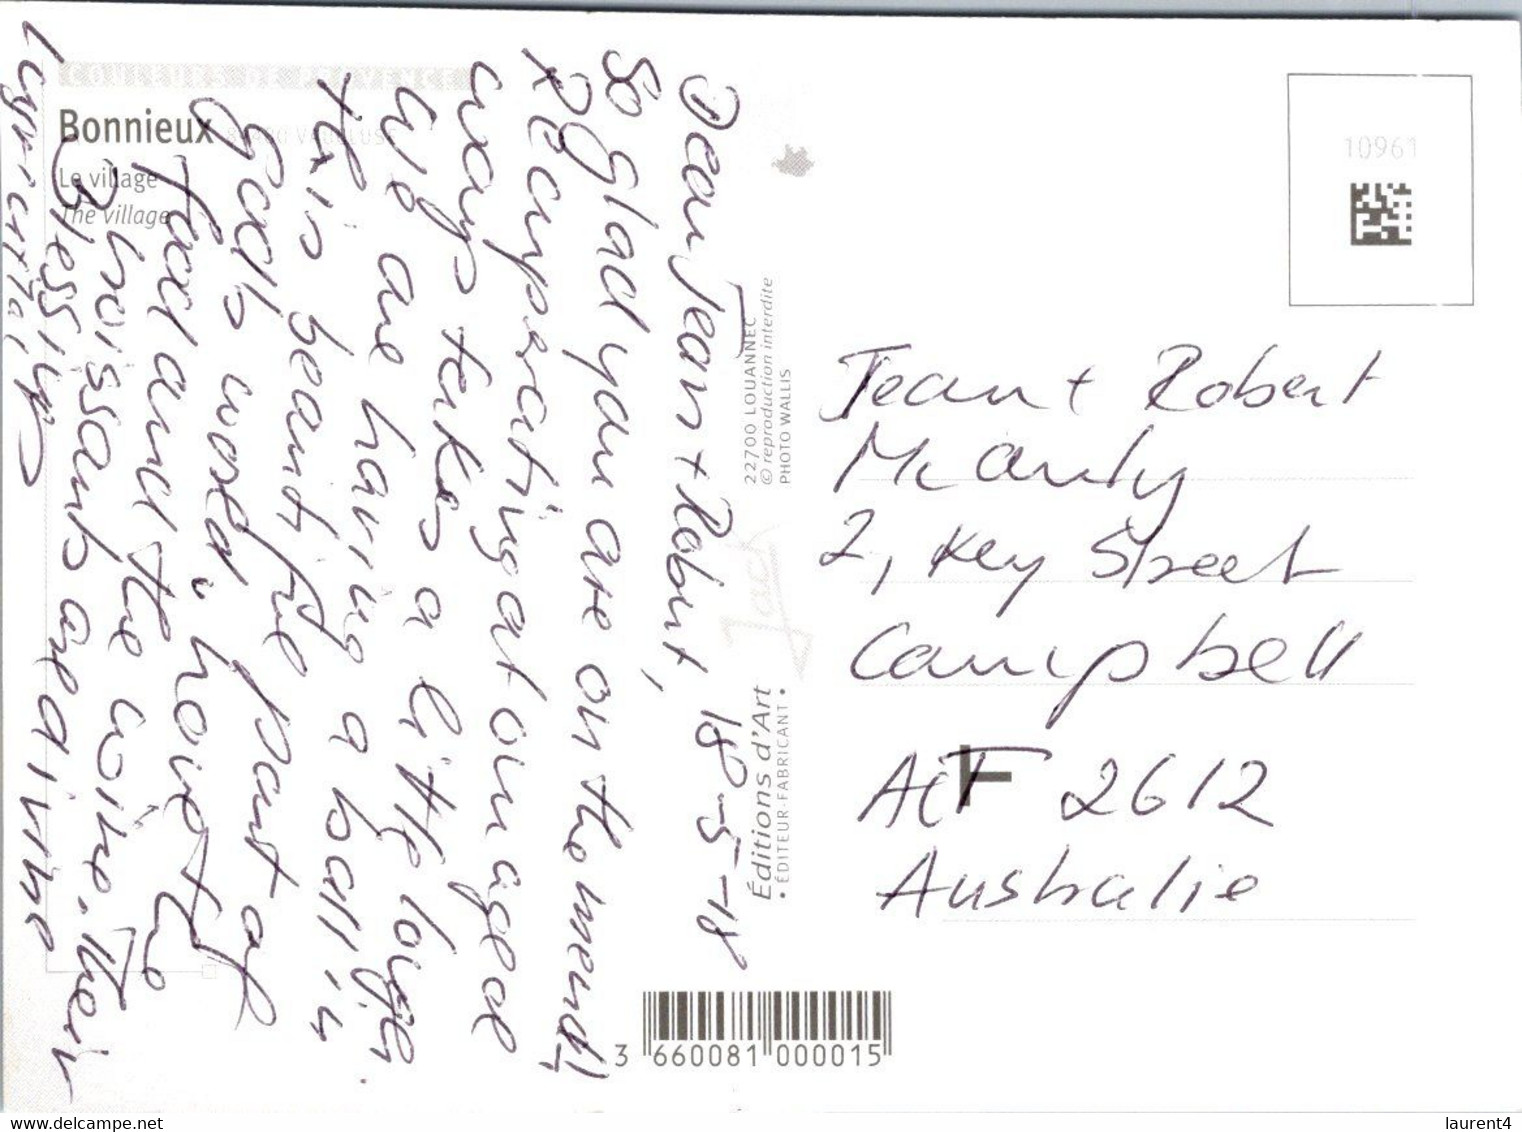 COULEURS DE PROVENCE
Bonnieux 84480 VAUCLUSE
Le village
The village
Dear Jean + Robert, 18-5-18
So glad you are on the mend!
Recuperating at our aged
ways takes a little longer.
We are having a ball in
this beautiful part of
God's world, love the
food and the wine. Their
are divine
22700 LOUANNEC
© reproduction interdite
PHOTO WALLIS
Jack
Éditions d'Art
• ÉDITEUR-FABRICANT •
3 660081 000015
10961
Jean + Robert
McAuly
2, Key Street
Campbell
ACT 2612
Australie
www.delcampe.net
laurent4